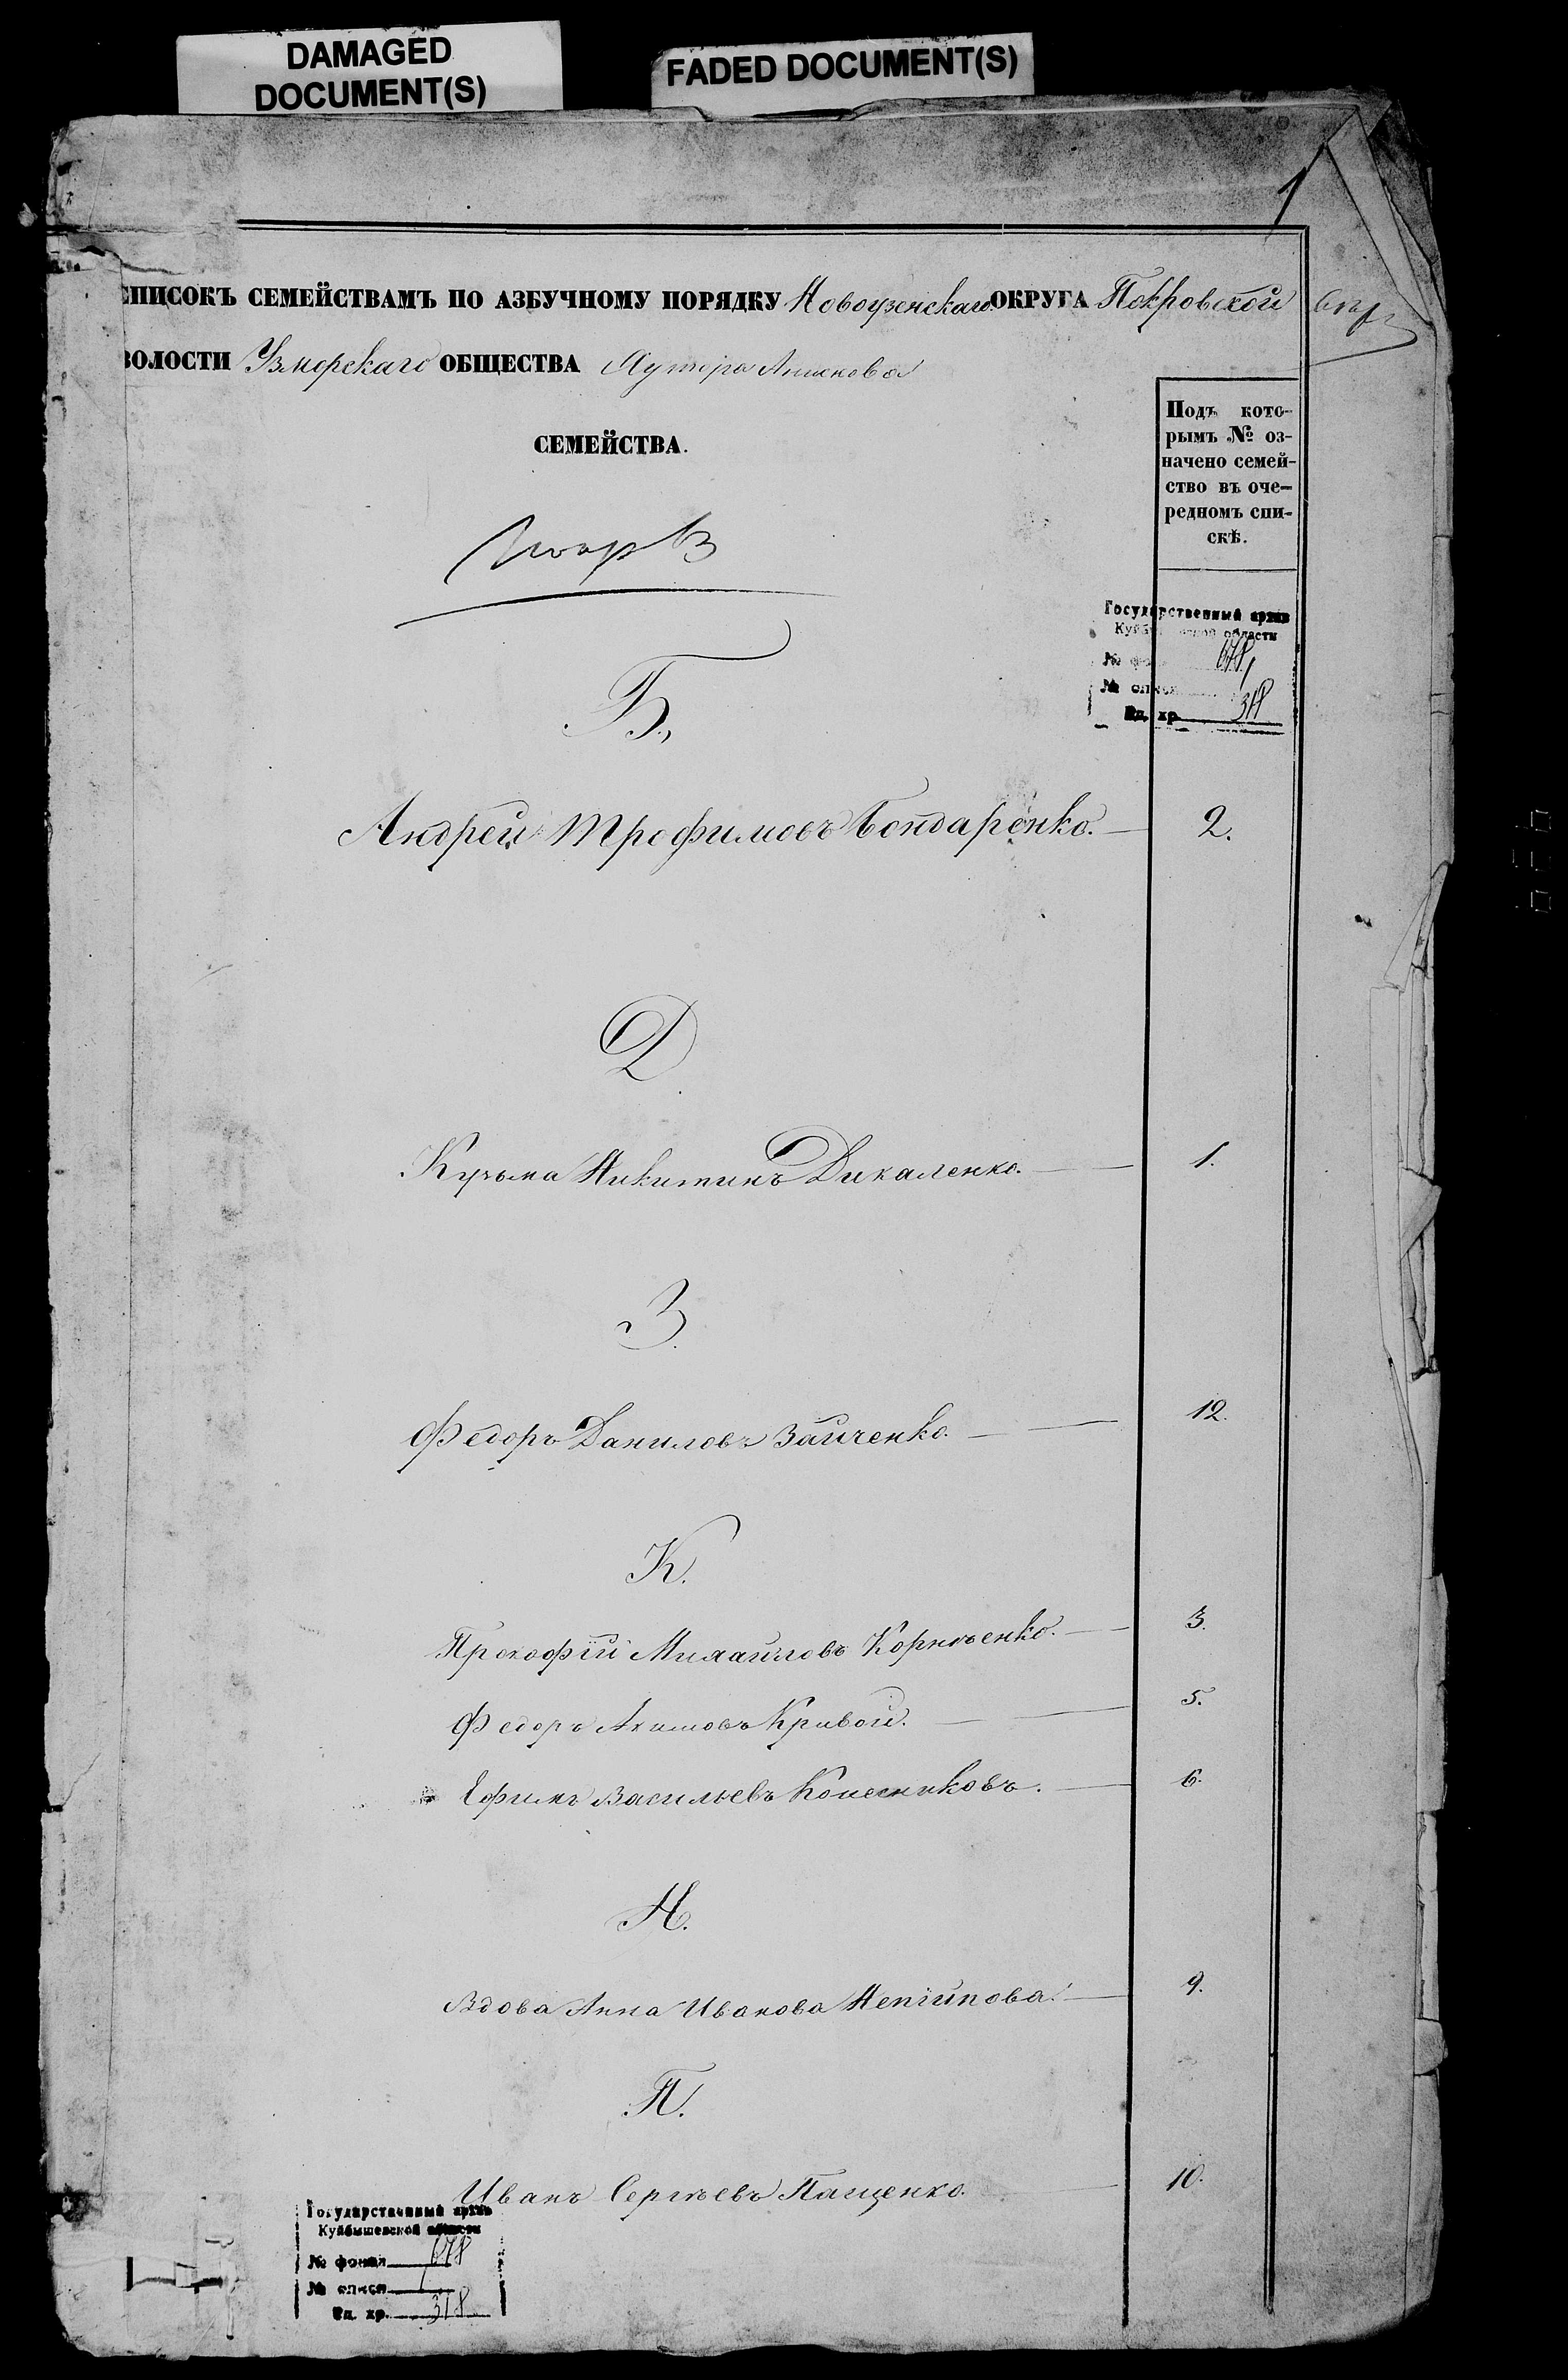 DAMAGED
DOCUMENT(S)
FADED DOCUMENT(S)
1
СПИСОКЪ СЕМЕЙСТВАМЪ ПО АЗБУЧНОМУ ПОРЯДКУ Новоузенскаго ОКРУГА Покровской
ВОЛОСТИ Узморскаго ОБЩЕСТВА Хутора
СЕМЕЙСТВА.
Подъ кото-
рымъ № оз-
начено семей-
ство въ оче-
редномъ спи-
скѣ.
Государственный архив
Куйбышевской области
№ фонда 678
№ описи
Ед. хр. 318
Б.
Андрей Трофимовъ Бондаренко. 2.
Д
Кузьма Никитинъ Дикаленко. 1.
З.
Федоръ Даниловъ Зайченко. 12.
К.
Прокофій Михайловъ Корніенко. 3.
Федоръ Акимовъ Кривой. 5.
Ефимъ Васильевъ Колесниковъ. 6.
Н.
Вдова Анна Иванова 9.
П.
Иванъ Сергѣевъ Пащенко. 10.
Государственный архив
Куйбышевской области
№ фонда 678
№ описи 1
Ед. хр. 318